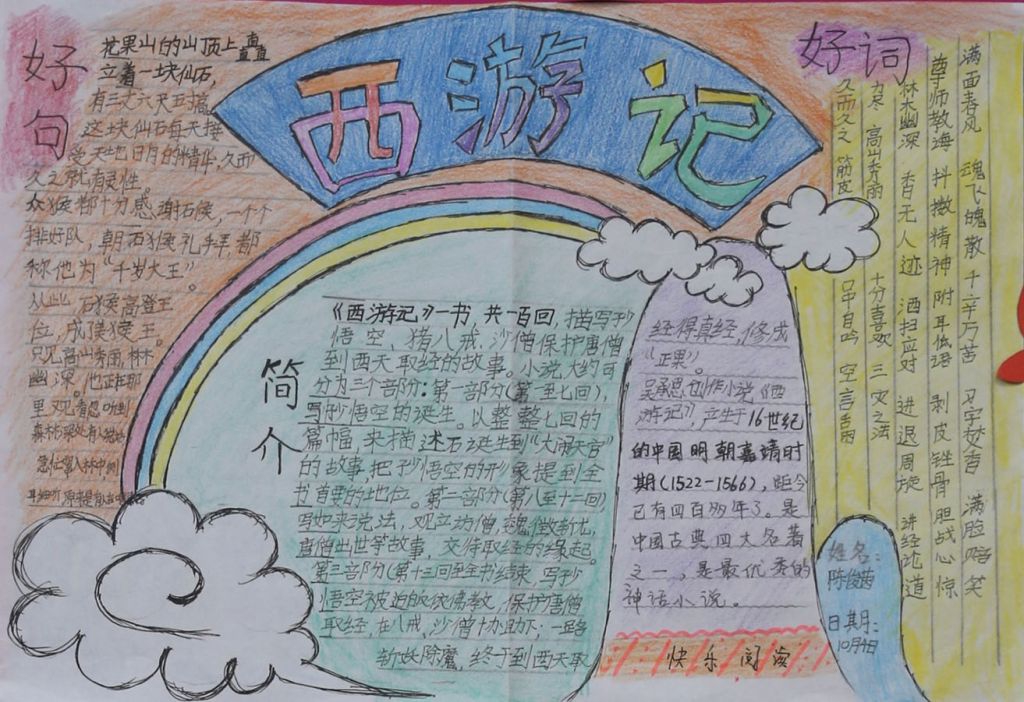 西游记
好句
花果山的山顶上直直
立着一块仙石,
有三丈六尺五搞,
这块仙石每天接
受天地日月的精华,久而
久之就有灵性。
众猴都十分感谢石侯,一个个
排好队,朝石猴礼拜,都
称他为“千岁大王”。
从此,石猴高登王
位,成
只见高山秀丽,林木
幽深。他正在那
里观看忽听到
森林深处有人
简介
《西游记》一书,共一百回,描写孙
悟空、猪八戒、沙僧保护唐僧
到西天取经的故事。小说大约可
分为三个部分:第一部分(第一至七回),
写孙悟空的诞生。以整整七回的
篇幅,来描述石诞生到“大闹天宫”
的故事,把孙悟空的形象提到全
书首要的地位。第二部分(第八至十二回)
写如来说法,观立访僧,魂
唐僧出世等故事,交待取经的缘起。
第三部分(第十三回至全书结束,写孙
悟空被迫皈依佛教,保护唐僧
取经,在八戒,沙僧协助下,一路
斩妖除魔,终于到西天取
经得真经,修成
“正果”。
吴承恩创作小说《西
游记》,产生于16世纪
的中国明朝嘉靖时
期(1522-1566),距今
已有四百多年了。是
中国古典四大名著
之一,是最优秀的
神话小说。
快乐阅读
好词
满面春风 魂飞魄散 千辛万苦 满脸赔笑
尊师教诲 抖擞精神 附耳低语 剥皮锉骨 胆战心惊
林木幽深 杳无人迹 洒扫应对 进退周旋 讲经论道
高山秀丽 十分喜欢 三灾之法
久而久之 筋皮 口中自吟 空言
姓名:
陈俊茜
日期:
10月4日